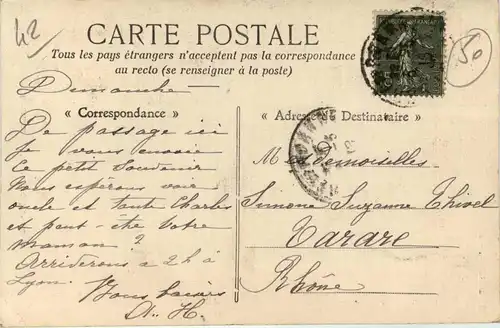 42
CARTE POSTALE
Tous les pays étrangers n'acceptent pas la correspondance
au recto (se renseigner à la poste)
50
Dimanche
« Correspondance »
« Adresse du Destinataire »
De passage ici
je vous envoie
ce petit souvenir
Nous espérons voir
oncle et tante Charles
et peut-être votre
maman ?
Arriverons à 2 h à
Lyon.
Bons baisers
H.
Mesdemoiselles
Simone Suzanne Thivel
Tarare
Rhône